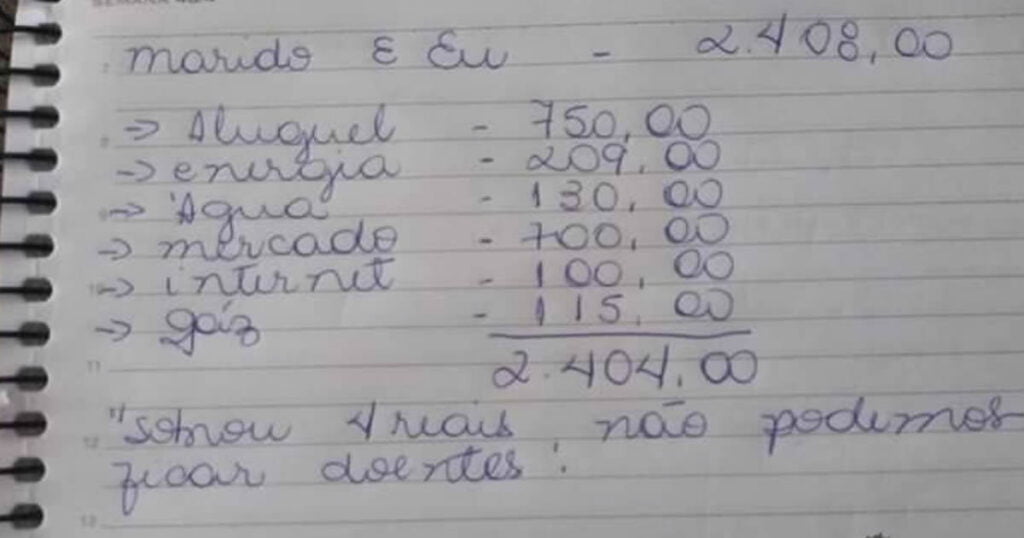 marido E Eu - 2.408,00
-> Aluguel - 750,00
-> energia - 209,00
-> Agua - 130,00
-> mercado - 700,00
-> internet - 100,00
-> gáz - 115,00
2.404,00
"sobrou 4 reais, não podemos
ficar doentes.